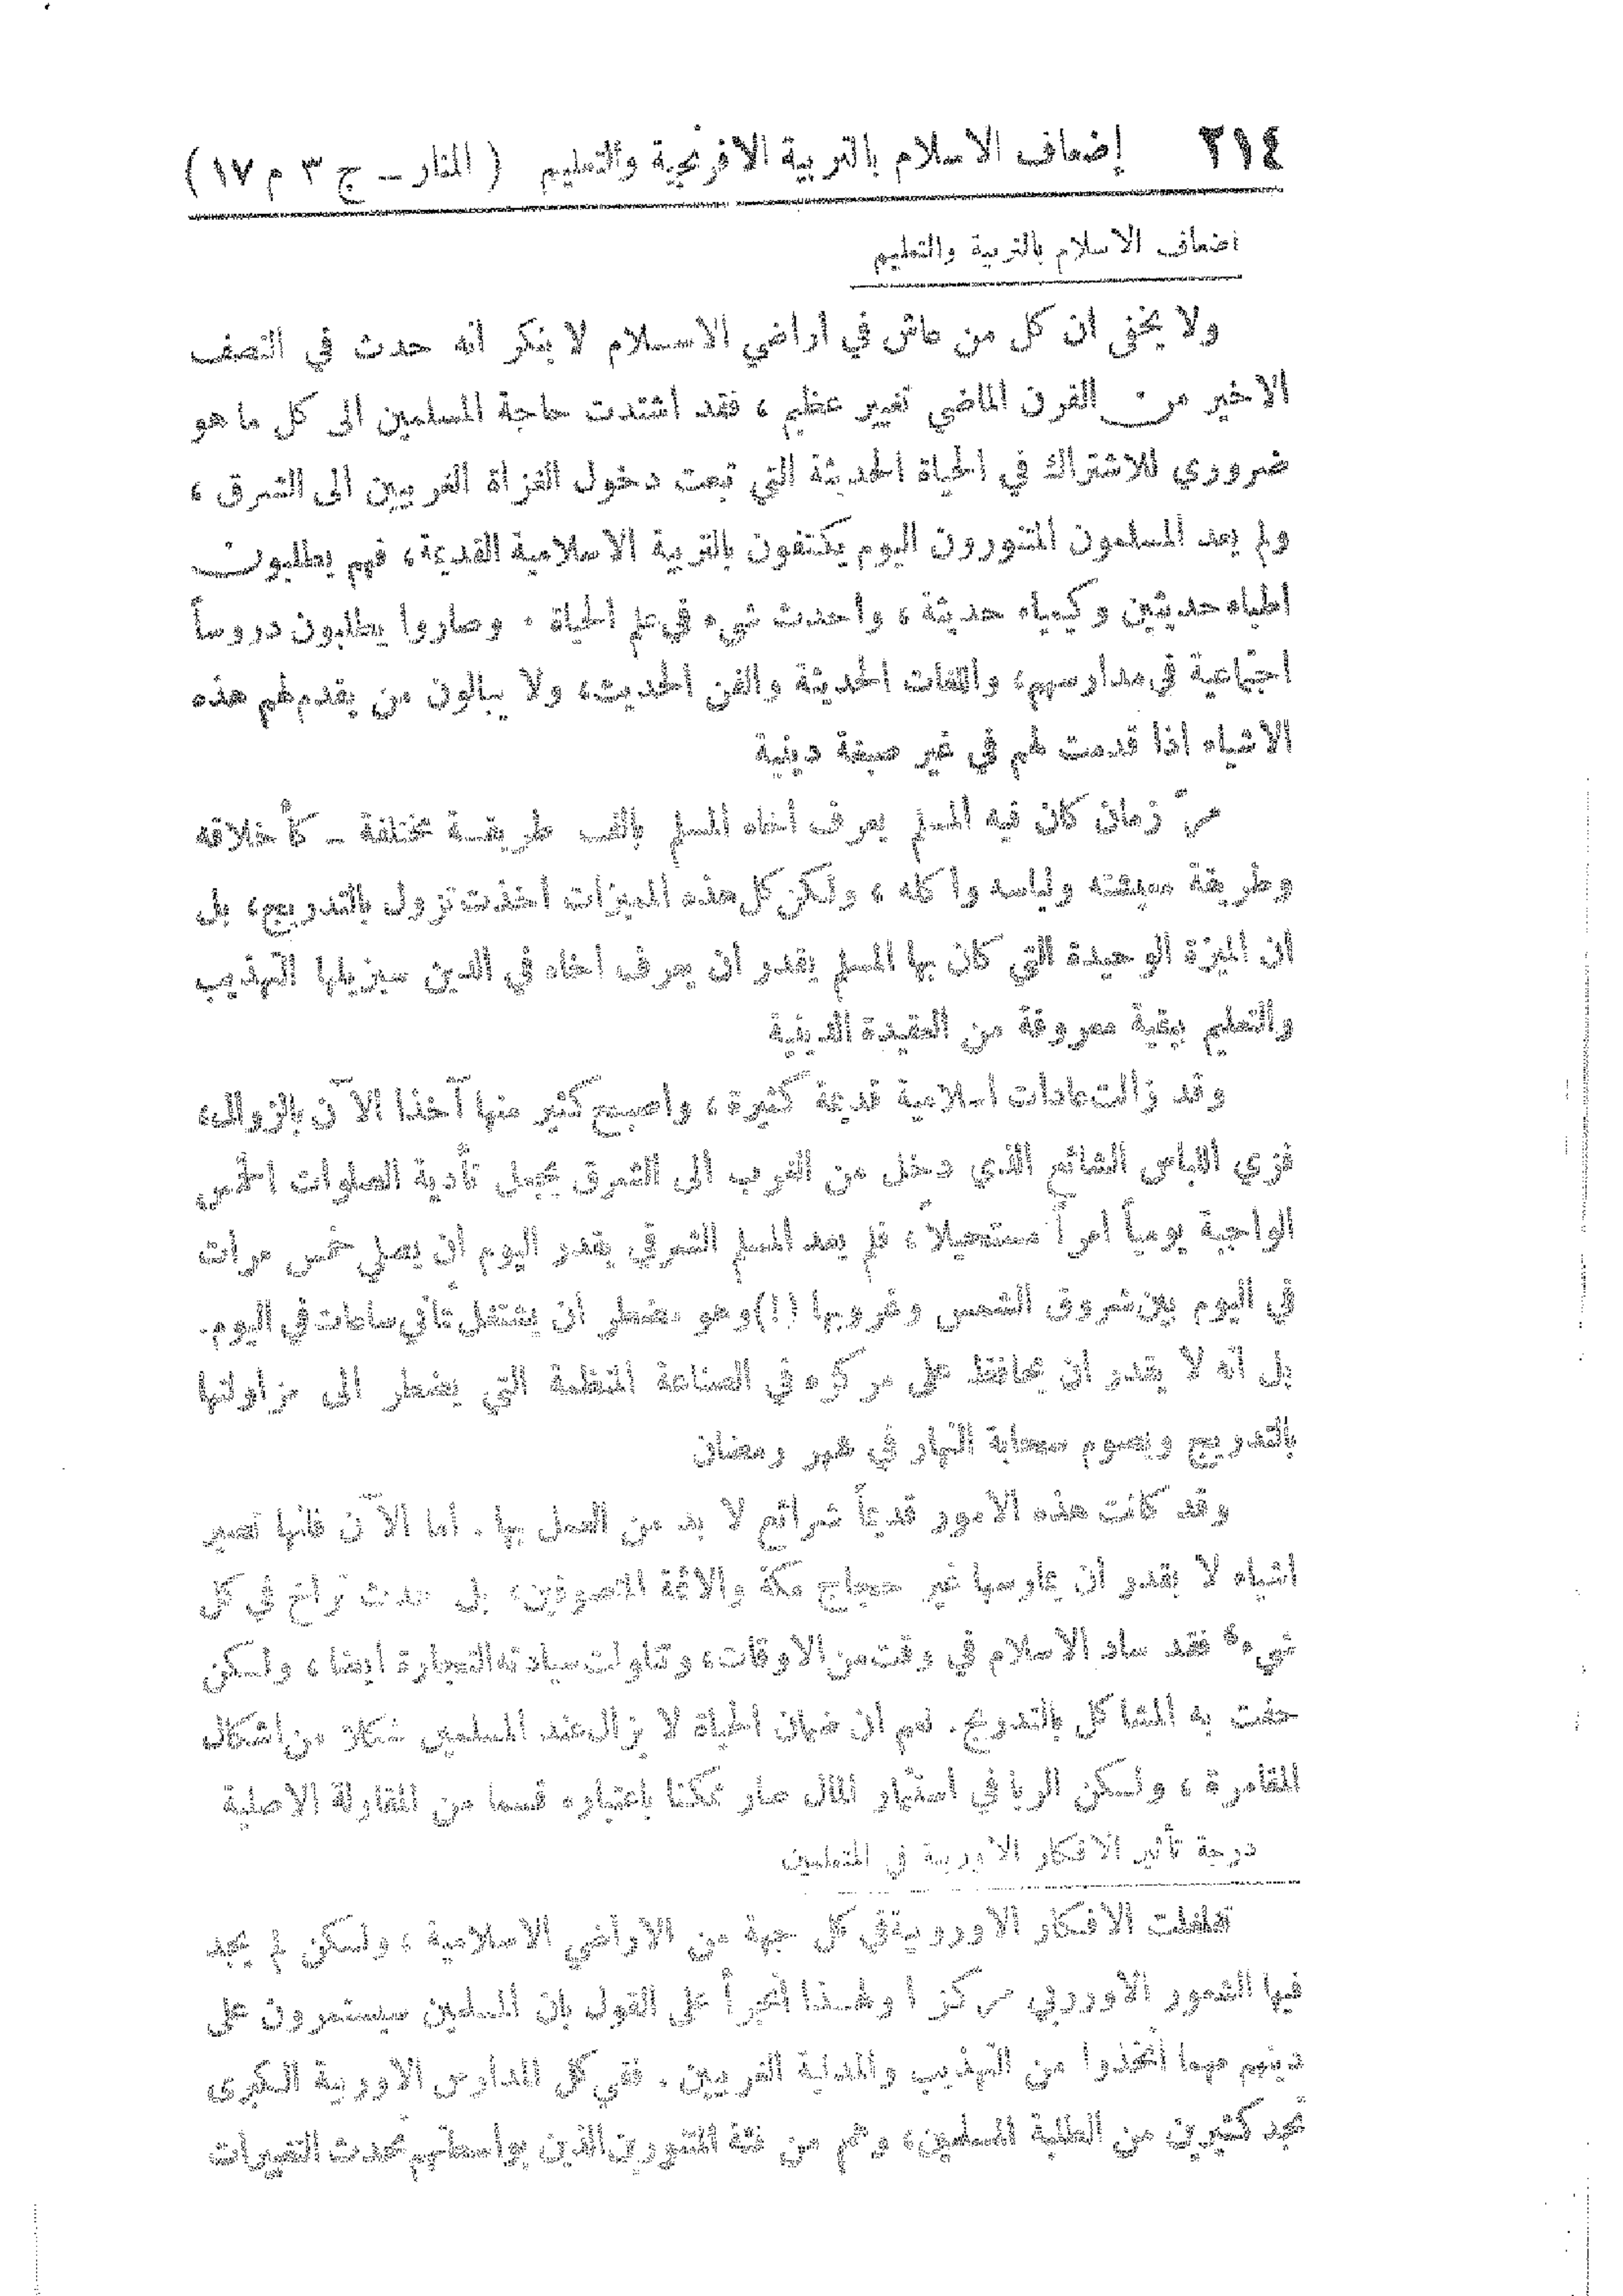 ٢١٤ إضعاف الاسلام بالتربية الافرنجية والتعليم ( المنار ــ ج ٣ م ١٧ )
اضعاف الاسلام بالتربية والتعليم
ولا يخفى ان كل من عاش في اراضي الاسلام لا ينكر أنه حدث في النصف
الاخير من القرن الماضي تغيير عظيم ، فقد اشتدت حاجة المسلمين الى كل ما هو
ضروري للاشتراك في الحياة الحديثة التي تبعت دخول الغزاة الغربيين الى الشرق ،
ولم يعد المسلمون المتنورون اليوم يكتفون بالتربية الاسلامية القديمة ، فهم يطلبون
اطباء حديثين وكيمياء حديثة ، واحدث شيء في علم الحياة . وصاروا يطلبون دروساً
اجتماعية في مدارسهم، واللغات الحديثة والفن الحديث، ولا يبالون من يقدم لهم هذه
الاشياء اذا قدمت لهم في غير صبغة دينية
مرّ زمان كان فيه المسلم يعرف أخاه المسلم بالف طريقة مختلفة ــ كأخلاقه
وطريقة معيشته ولباسه وأكله ، ولكن كل هذه المميزات أخذت تزول بالتدريج، بل
ان الميزة الوحيدة التي كان بها المسلم يقدر ان يعرف اخاه في الدين سيزيلها التهذيب
والتعليم ببقية معروفة من العقيدة الدينية
وقد زالت عادات اسلامية قديمة كثيرة ، واصبح كثير منها آخذا الآن بالزوال،
فزي اللباس الشائع الذي دخل من الغرب الى الشرق يجعل تأدية الصلوات الخمس
الواجبة يومياً امراً مستحيلاً ، فلم يعد المسلم الشرقي يقدر اليوم أن يصلي خمس مرات
في اليوم بين شروق الشمس وغروبها (!) وهو مضطر ان يشتغل ثماني ساعات في اليوم.
بل انه لا يقدر ان يحافظ على مركزه في الصناعة المنظمة التي يضطر الى مزاولتها
بالتدريج ويصوم سحابة النهار في شهر رمضان
وقد كانت هذه الامور قديماً شرائع لا بد من العمل بها . أما الآن فانها تصير
اشياء لا يقدر ان يمارسها غير حجاج مكة والائمة المتصوفين، بل حدث تراخ في كل
شيء، فقد ساد الاسلام في وقت من الاوقات، وتناولت سيادته التجارة ايضا ، ولكن
حفت به المشاكل بالتدريج. نعم ان ضمان الحياة لا يزال عند المسلمين شكلا من اشكال
المقامرة ، ولكن الربا في استثمار المال صار ممكنا باعتباره قسما من المقاولة الاصلية
درجة تأثير الافكار الاوربية في المتعلمين
تغلغلت الافكار الاوروبية في كل جهة من الاراضي الاسلامية ، ولكن لم يجد
فيها الشعور الاوربي مركزا ولهذا أتجرأ على القول بان المسلمين سيستمرون على
دينهم مهما اتخذوا من التهذيب والمدنية الغربيين . ففي كل المدارس الاوربية الكبرى
تجد كثيرين من الطلبة المسلمين، وهم من فئة المتنورين الذين بواسطتهم تحدث التغييرات